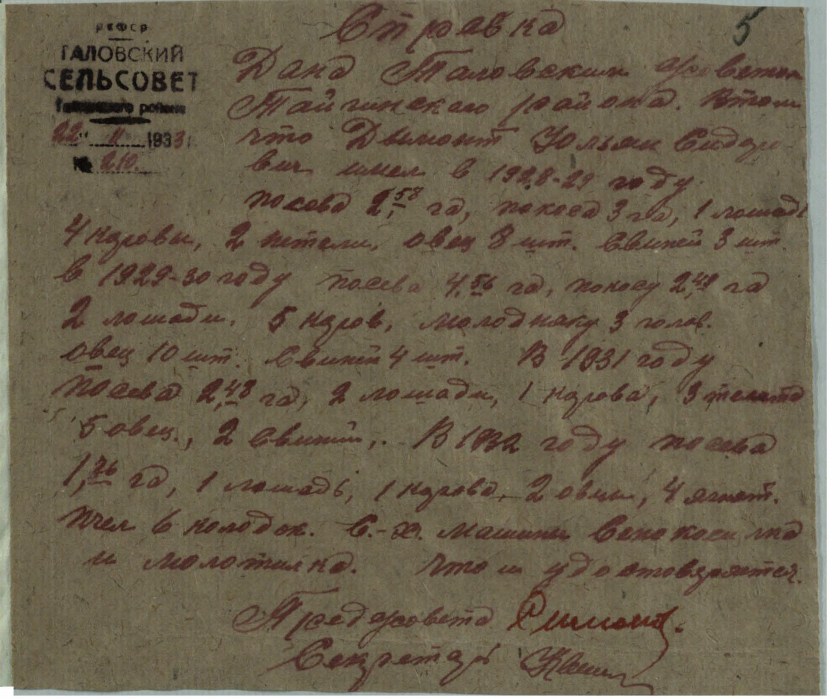 РСФСР
ТАЛОВСКИЙ
СЕЛЬСОВЕТ
района
22 " II 1933
№ 210.
5
Справка
Дана Таловским с/советом
Тайгинского района. в том
что Димонт Ульян Сидоро-
вич имел в 1928-29 году
посева 2,58 га, покоса 3 га, 1 лошадь
4 коровы, 2 нетели, овец 8 шт. Свиней 3 шт.
в 1929-30 году посева 4,56 га, покосу 2,48 га
2 лошади, 5 коров, молодняку 3 голов.
овец 10 шт. Свиней 4 шт. В 1931 году
посева 2,48 га, 2 лошади, 1 корова, 3 теленка
5 овец, 2 Свиньи, В 1932 году посева
1,76 га, 1 лошадь, 1 корова, 2 овцы, 4 ягнят.
пчел 6 колодок. С.-Х. машины Сенокосилка
и молотилка. что и удостоверяется.
Пред с/совета
Секретарь